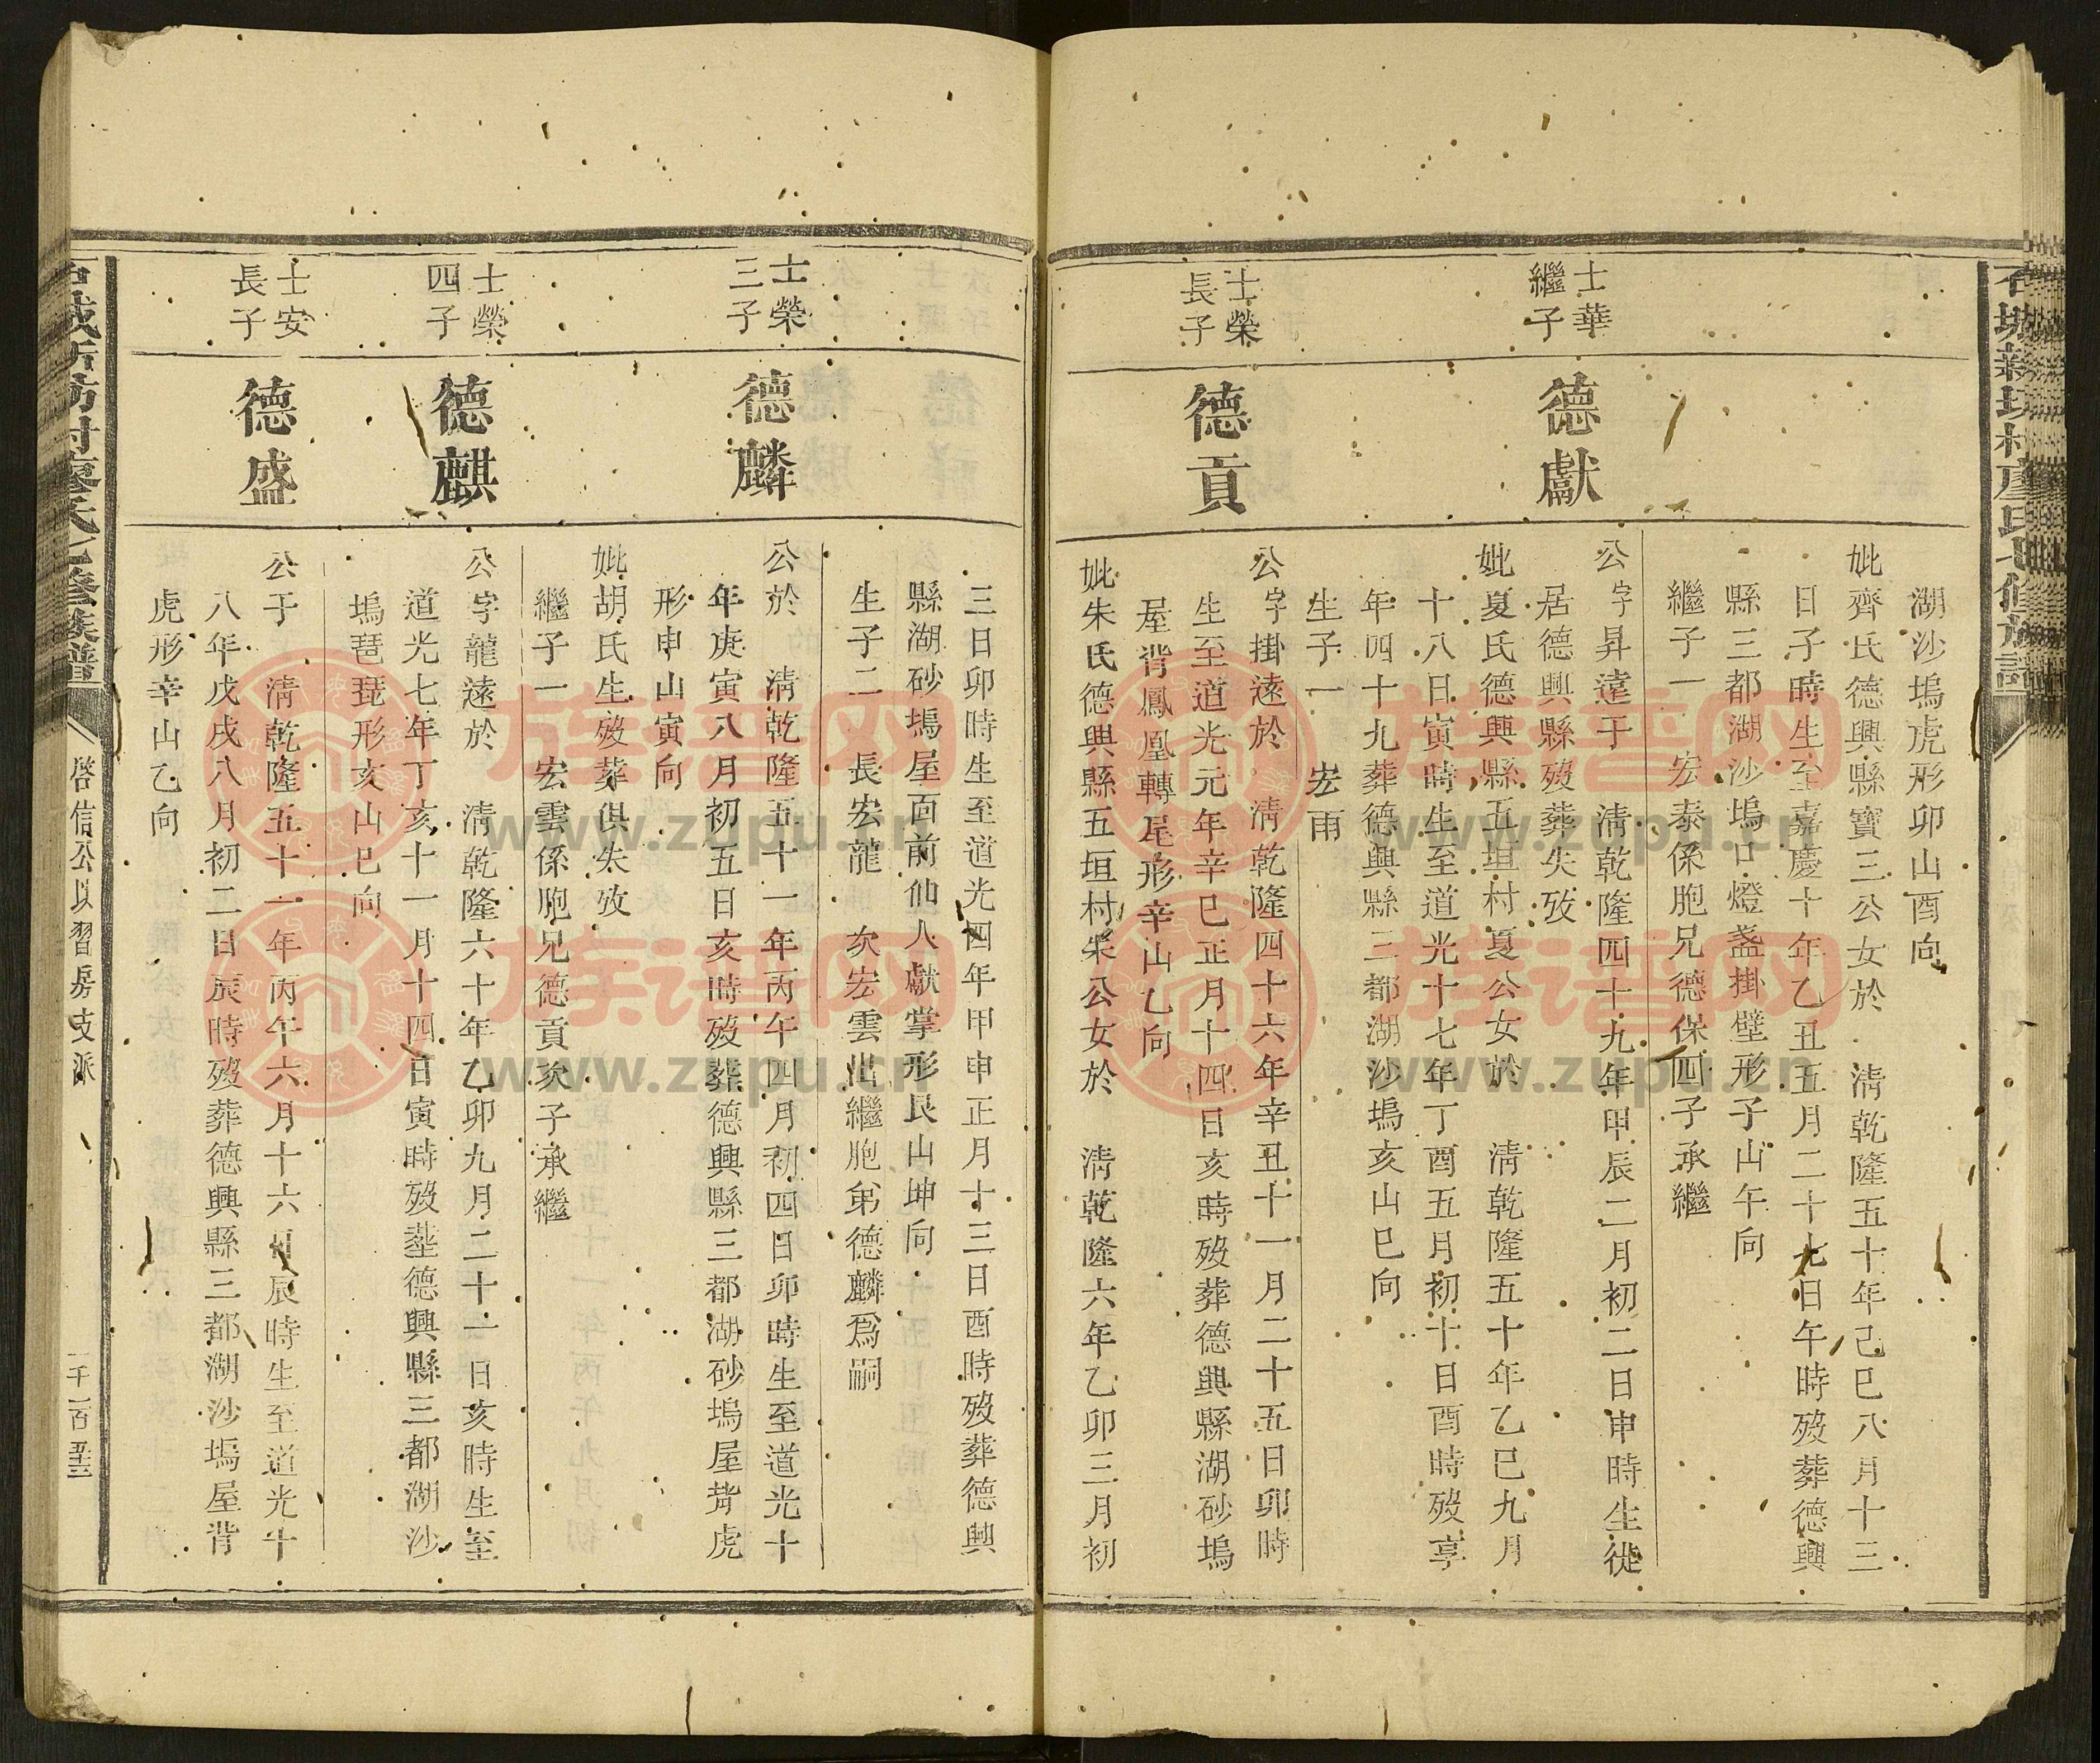 湖沙塢虎形卯山酉向
妣齊氏德興縣寶三公女於 清乾隆五十年己巳八月十三
日子時生至嘉慶十年乙丑五月二十九日午時歿葬德興
縣三都湖沙塢口燈盞掛壁形子山午向
繼子一 宏泰係胞兄德保四子承繼
士華
繼子
德獻
公字昇遠于 清乾隆四十九年甲辰二月初二日申時生徙
居德興縣歿葬失攷
妣夏氏德興縣五垣村夏公女於 清乾隆五十年乙巳九月
十八日寅時生至道光十七年丁酉五月初十日酉時歿享
年四十九葬德興縣三都湖沙塢亥山巳向
生子一 宏雨
士榮
長子
德貢
公字掛遠於 清乾隆四十六年辛丑十一月二十五日卯時
生至道光元年辛巳正月十四日亥時歿葬德興縣湖砂塢
屋背鳳凰轉尾形辛山乙向
妣朱氏德興縣五垣村朱公女於 清乾隆六年乙卯三月初
三日卯時生至道光四年甲申正月十三日酉時歿葬德興
縣湖砂塢屋面前仙人獻掌形艮山坤向
生子二 長宏龍 次宏雲出繼胞弟德麟爲嗣
士榮
三子
德麟
公於 清乾隆五十一年丙午四月初四日卯時生至道光十
年庚寅八月初五日亥時歿葬德興縣三都湖砂塢屋背虎
形申山寅向
妣胡氏生歿葬俱失攷
繼子一 宏雲係胞兄德貢次子承繼
士榮
四子
德麒
公字龍遠於 清乾隆六十年乙卯九月二十一日亥時生至
道光七年丁亥十一月十四日寅時歿塟德興縣三都湖沙
塢琶琵形亥山巳向
士安
長子
德盛
公于 清乾隆五十一年丙午六月十六日辰時生至道光十
八年戊戌八月初二日辰時歿葬德興縣三都湖沙塢屋背
虎形辛山乙向
啓信公以習房支派
一千一百五十三
族谱网
www.zupu.cn
族谱网
www.zupu.cn
族谱网
www.zupu.cn
族谱网
www.zupu.cn